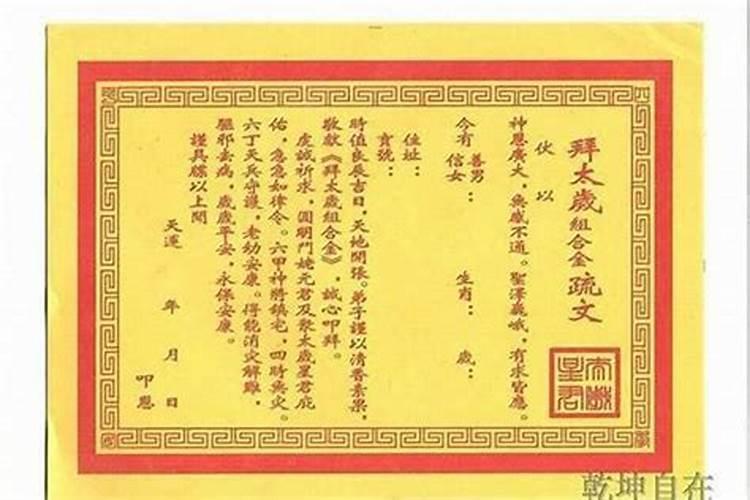 拜太歲組合金疏文
伏以
神恩廣大，無感不通。聖澤巍峨，有求皆應。
今有 善男 信女： 生肖： 歲：
住址：
寶號：
時值良辰吉日，天地開張。弟子謹以清香素果，
敬獻《拜太歲組合金》，誠心叩拜。
虔誠祈求，圓明斗姥元君及眾太歲星君庇
佑，急急如律令。六甲神將鎮宅，四時無災。
六丁天兵守護，老幼安康。得能消災解難，
驅邪去病，歲歲平安，永保安康。
謹具牒以上聞
天運 年 月 日
叩恩
太歲星君
乾坤自在